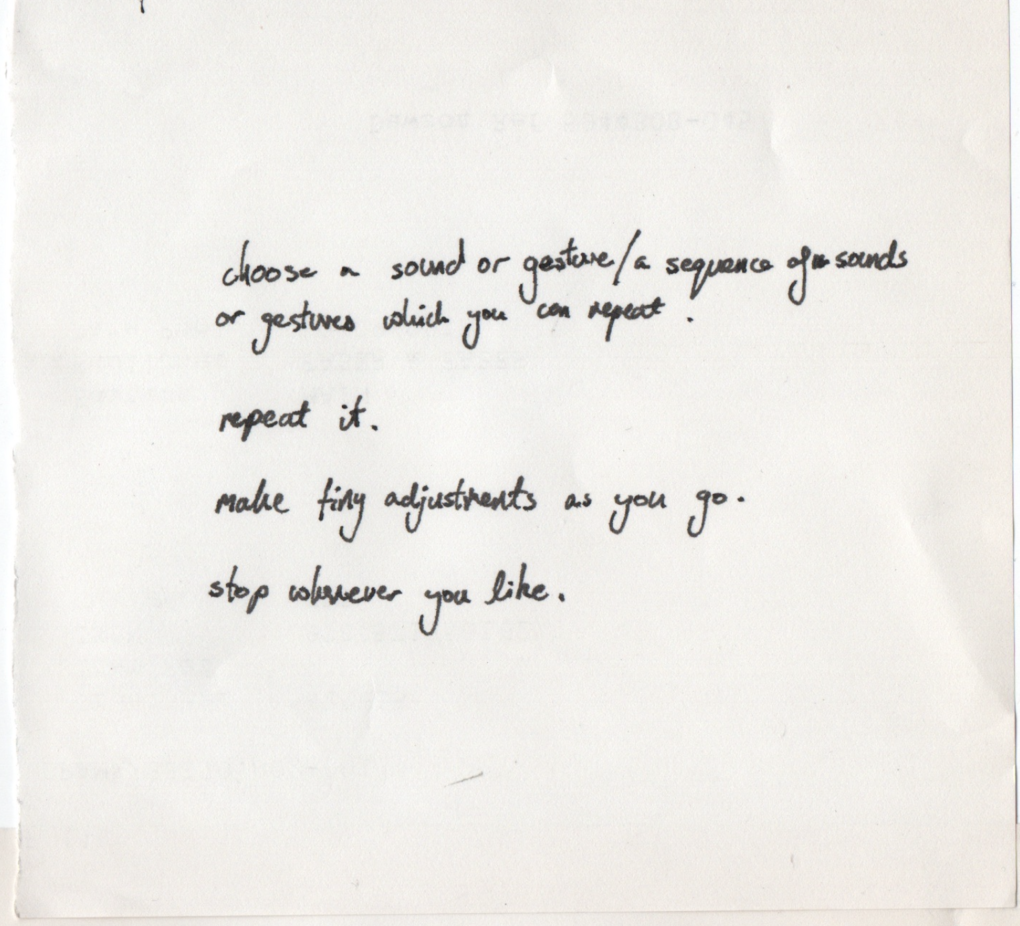 choose a sound or gesture/a sequence of sounds
or gestures which you can repeat.
repeat it.
make tiny adjustments as you go.
stop whenever you like.